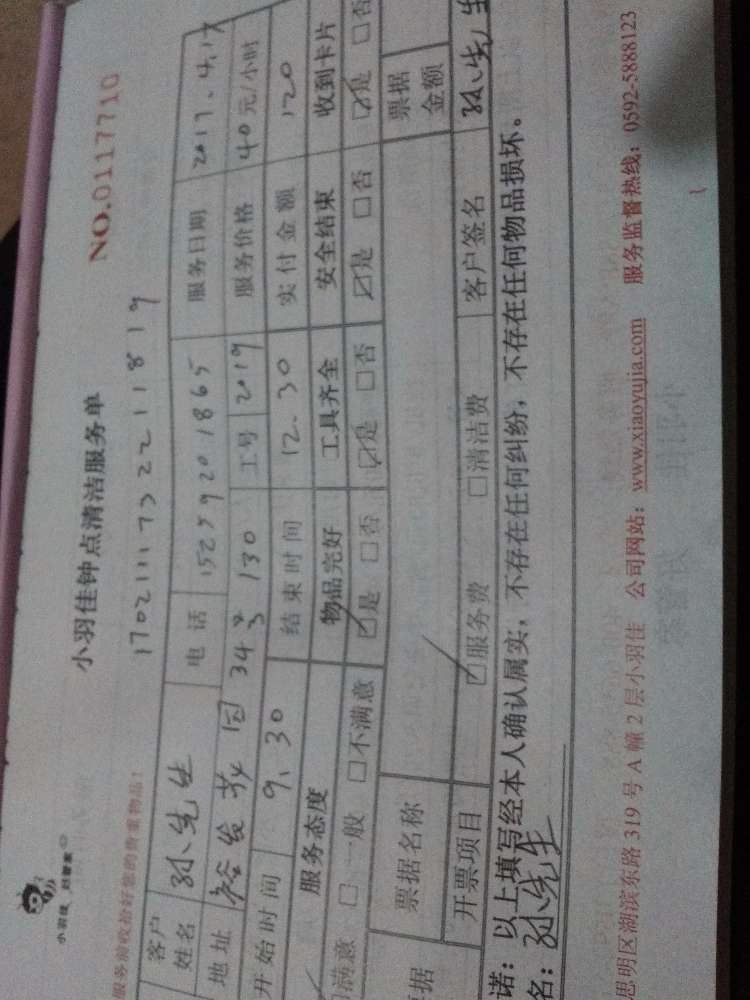 小羽佳 好管家
小羽佳钟点清洁服务单
NO.0117710
17021111732211819
服务前收拾好您的贵重物品！
客户姓名 孙先生 电话 15259201865 服务日期 2017.4.17
地址 裕发花园 34 130 工号 2019 服务价格 40元/小时
开始时间 9.30 结束时间 12.30 实付金额 120
服务态度 物品完好 工具齐全 安全结束 收到卡片
满意 □一般 □不满意 ☑是 □否 ☑是 □否 ☑是 □否 ☑是 □否
票据名称 票据金额
据 开票项目 ☑服务费 □清洁费 客户签名 孙先生
诺：以上填写经本人确认属实，不存在任何纠纷，不存在任何物品损坏。
名：孙先生
思明区湖滨东路319号A幢2层小羽佳 公司网站：www.xiaoyujia.com 服务监督热线：0592-5888123